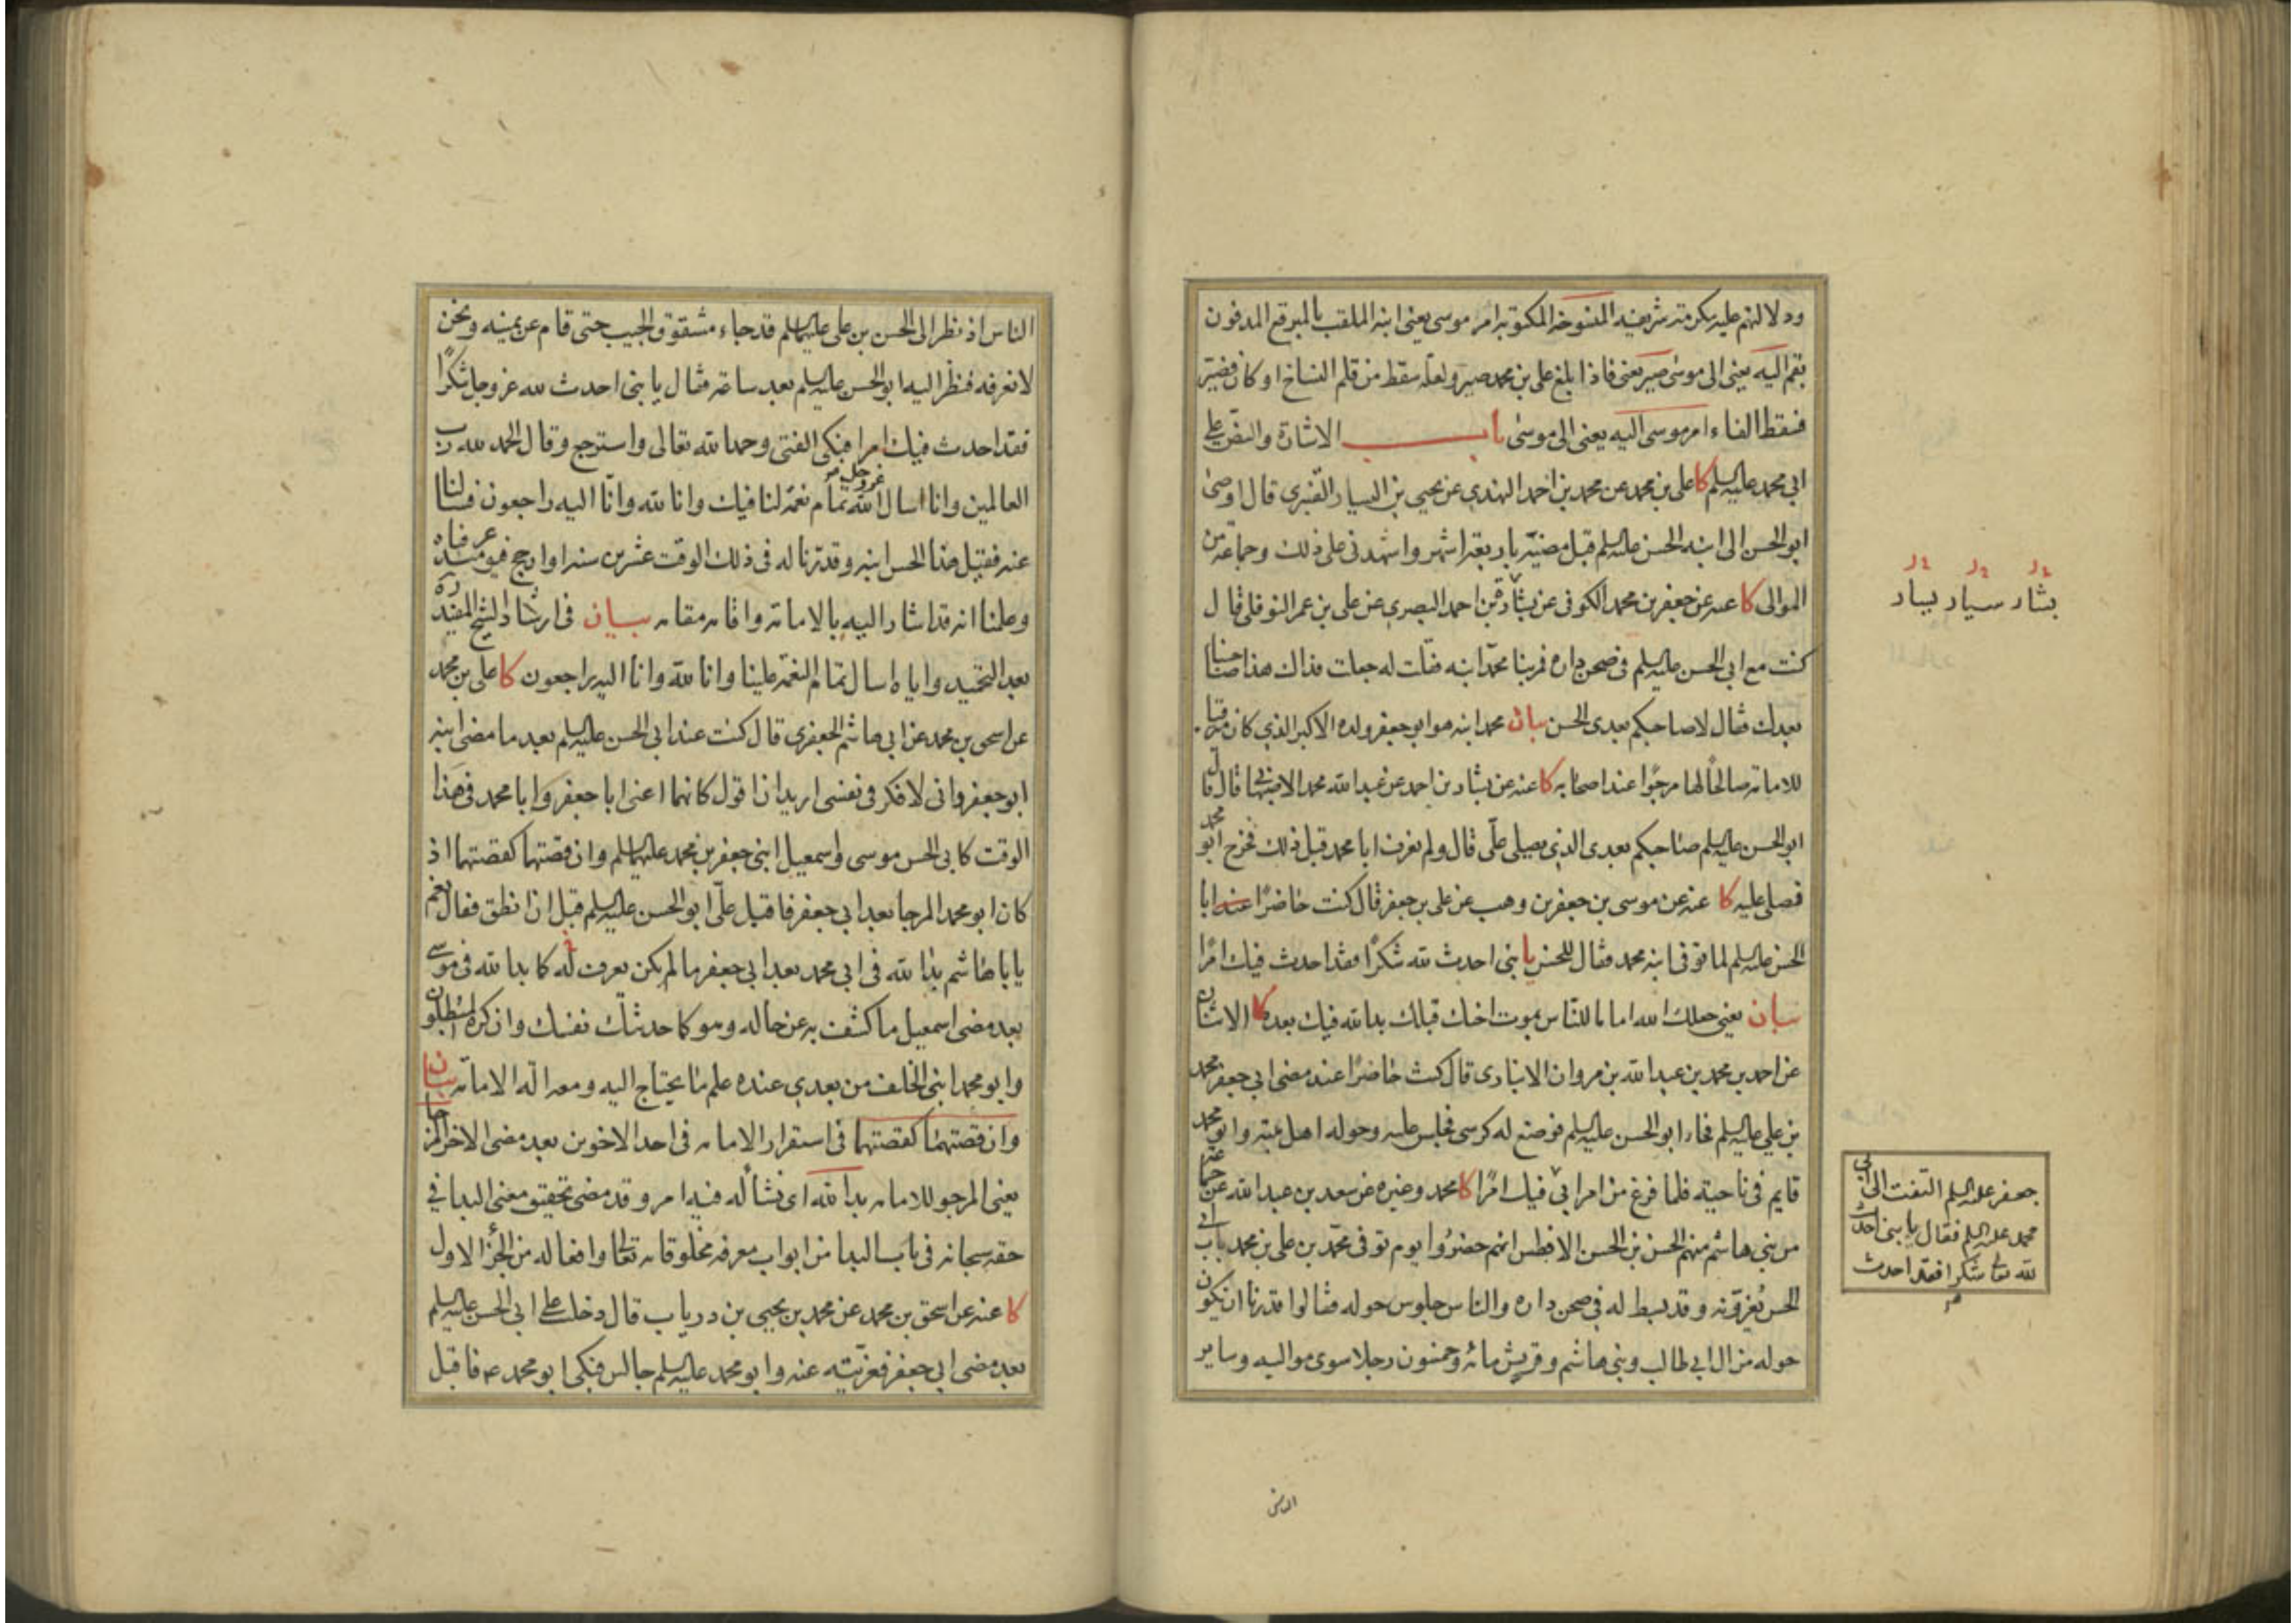 ودلالتهم عليه بكرمته شريفيه المنسوخه المكتوبه امر موسى يعنى ابنه الملقب بالمبرقع المدفون
بقم اليه يعنى الى موسى صير يعنى فاذا بلغ على بن محمد صير ولعله سقط من قلم النساخ او كان فصير
فسقط الفاء امر موسى اليه يعنى الى موسى باب الاشارة والنص على
ابي محمد عليه السلم كا على بن محمد عن محمد بن احمد النهدي عن يحيى بن اليسار القنبري قال اوصى
ابو الحسن الى ابنه الحسن عليه السلم قبل مضيه باربعة اشهر واشهدنى على ذلك وجماعة من
الموالى كا عنه عن جعفر بن محمد الكوفى عن بشار بن احمد البصرى عن على بن عمر النوفلى قال
كنت مع ابى الحسن عليه السلم فى صحن داره فمر بنا محمد ابنه فقلت له جعلت فداك هذا صاحبنا
بعدك فقال لا صاحبكم بعدى الحسن بيان محمد ابنه هو ابو جعفر ولده الاكبر الذي كان
للامامة صالحًا لها مرجوًا عند اصحابه كا عنه عن بشار بن احمد عن عبد الله محمد الاصفهانى قال قال
ابو الحسن عليه السلم صاحبكم بعدى الذي يصلى علّى قال ولم نعرف ابا محمد قبل ذلك فخرج ابو محمد
فصلى عليه كا عنه عن موسى بن جعفر بن وهب عن على بن جعفر قال كنت حاضرًا عند ابا
الحسن عليه السلم لما توفى ابنه محمد فقال للحسن يا بنى احدث لله شكرًا فقد احدث فيك امرًا
بيان يعنى جعلك الله اماما للناس بموت اخيك قبلك بدا لله فيك بعده كا الاثنان
عن احمد بن محمد بن عبد الله بن مروان الانبارى قال كنت حاضرًا عند مضى ابي جعفر محمد
بن علي عليه السلم فجاء ابو الحسن عليه السلم فوضع له كرسى فجلس عليه وحوله اهل بيته وابو محمد
قايم فى ناحية فلما فرغ من امر ابى فيك امرًا كا محمد وغيره عن سعد بن عبد الله عن جماعة
من بنى هاشم منهم الحسن بن الحسن الافطس انهم حضروا يوم توفى محمد بن على بن محمد باب ابى
الحسن يُعزّونه وقد بسط له فى صحن داره والناس جلوس حوله فقالوا قدرنا ان يكون
حوله من آل ابي طالب وبنى هاشم وقريش مائة وخمسون رجلا سوى مواليه وساير
بشار سيار يسار
جعفر عليه السلم التفت الى ابى
محمد عليه السلم فقال يا بنى احدث
لله تعالى شكرا فقد احدث
الناس
الناس اذ نظر الى الحسن بن على عليهما السلم قد جاء مشقوق الجيب حتى قام عن يمينه ونحن
لا نعرفه فنظر اليه ابو الحسن عليه السلم بعد ساعة فقال يا بنى احدث لله عز وجل شكرًا
فقد احدث فيك امرا فبكى الفتى وحمد الله تعالى واسترجع وقال الحمد لله رب
العالمين وانا اسال الله عز وجل تمام نعمه لنا فيك وانا لله وانّا اليه راجعون فسالنا
عنه فقيل هذا الحسن ابنه وقدّرنا له فى ذلك الوقت عشرين سنة او ارجح فيومئذ عرفناه
وعلمنا انه قد اشار اليه بالامامة واقامه مقامه بيان فى ارشاد الشيخ المفيد ره
بعد التحميد واياه اسال تمام النعمة علينا وانا لله وانا اليه راجعون كا على بن محمد
عن اسحق بن محمد عن ابي هاشم الجعفرى قال كنت عند ابي الحسن عليه السلم بعد ما مضى ابنه
ابو جعفر وانى لافكر فى نفسى اريد ان اقول كانهما اعنى ابا جعفر وابا محمد فى هذا
الوقت كابى الحسن موسى واسمعيل ابنى جعفر بن محمد عليهما السلم وان قصتهما كقصتهما اذ
كان ابو محمد المرجا بعد ابى جعفر فاقبل علّى ابو الحسن عليه السلم قبل ان انطق فقال نعم
يا با هاشم بدا لله فى ابى محمد بعد ابى جعفر ما لم يكن يعرف له كما بدا لله فى موسى
بعد مضى اسمعيل ما كشف به عن حاله وهو كما حدثتك نفسك وان كره المبطلون
وابو محمد ابنى الخلف من بعدي عنده علم ما يحتاج اليه ومعه آلة الامامة بيان
وان قصتهما كقصتهما فى استقرار الامامة فى احد الاخوين بعد مضى الاخر المرجا
يعنى المرجو للامامة بدا لله اى نشأ له فيه امر وقد مضى تحقيق معنى البدا فى
حقه سبحانه فى باب البدا من ابواب معرفة مخلوقاته تعالى وافعاله من الجزء الاول
كا عنه عن اسحق بن محمد عن محمد بن يحيى بن درياب قال دخلت على ابى الحسن عليه السلم
بعد مضى ابى جعفر فعزّيته عنه وابو محمد عليه السلم جالس فبكى ابو محمد ع فاقبل